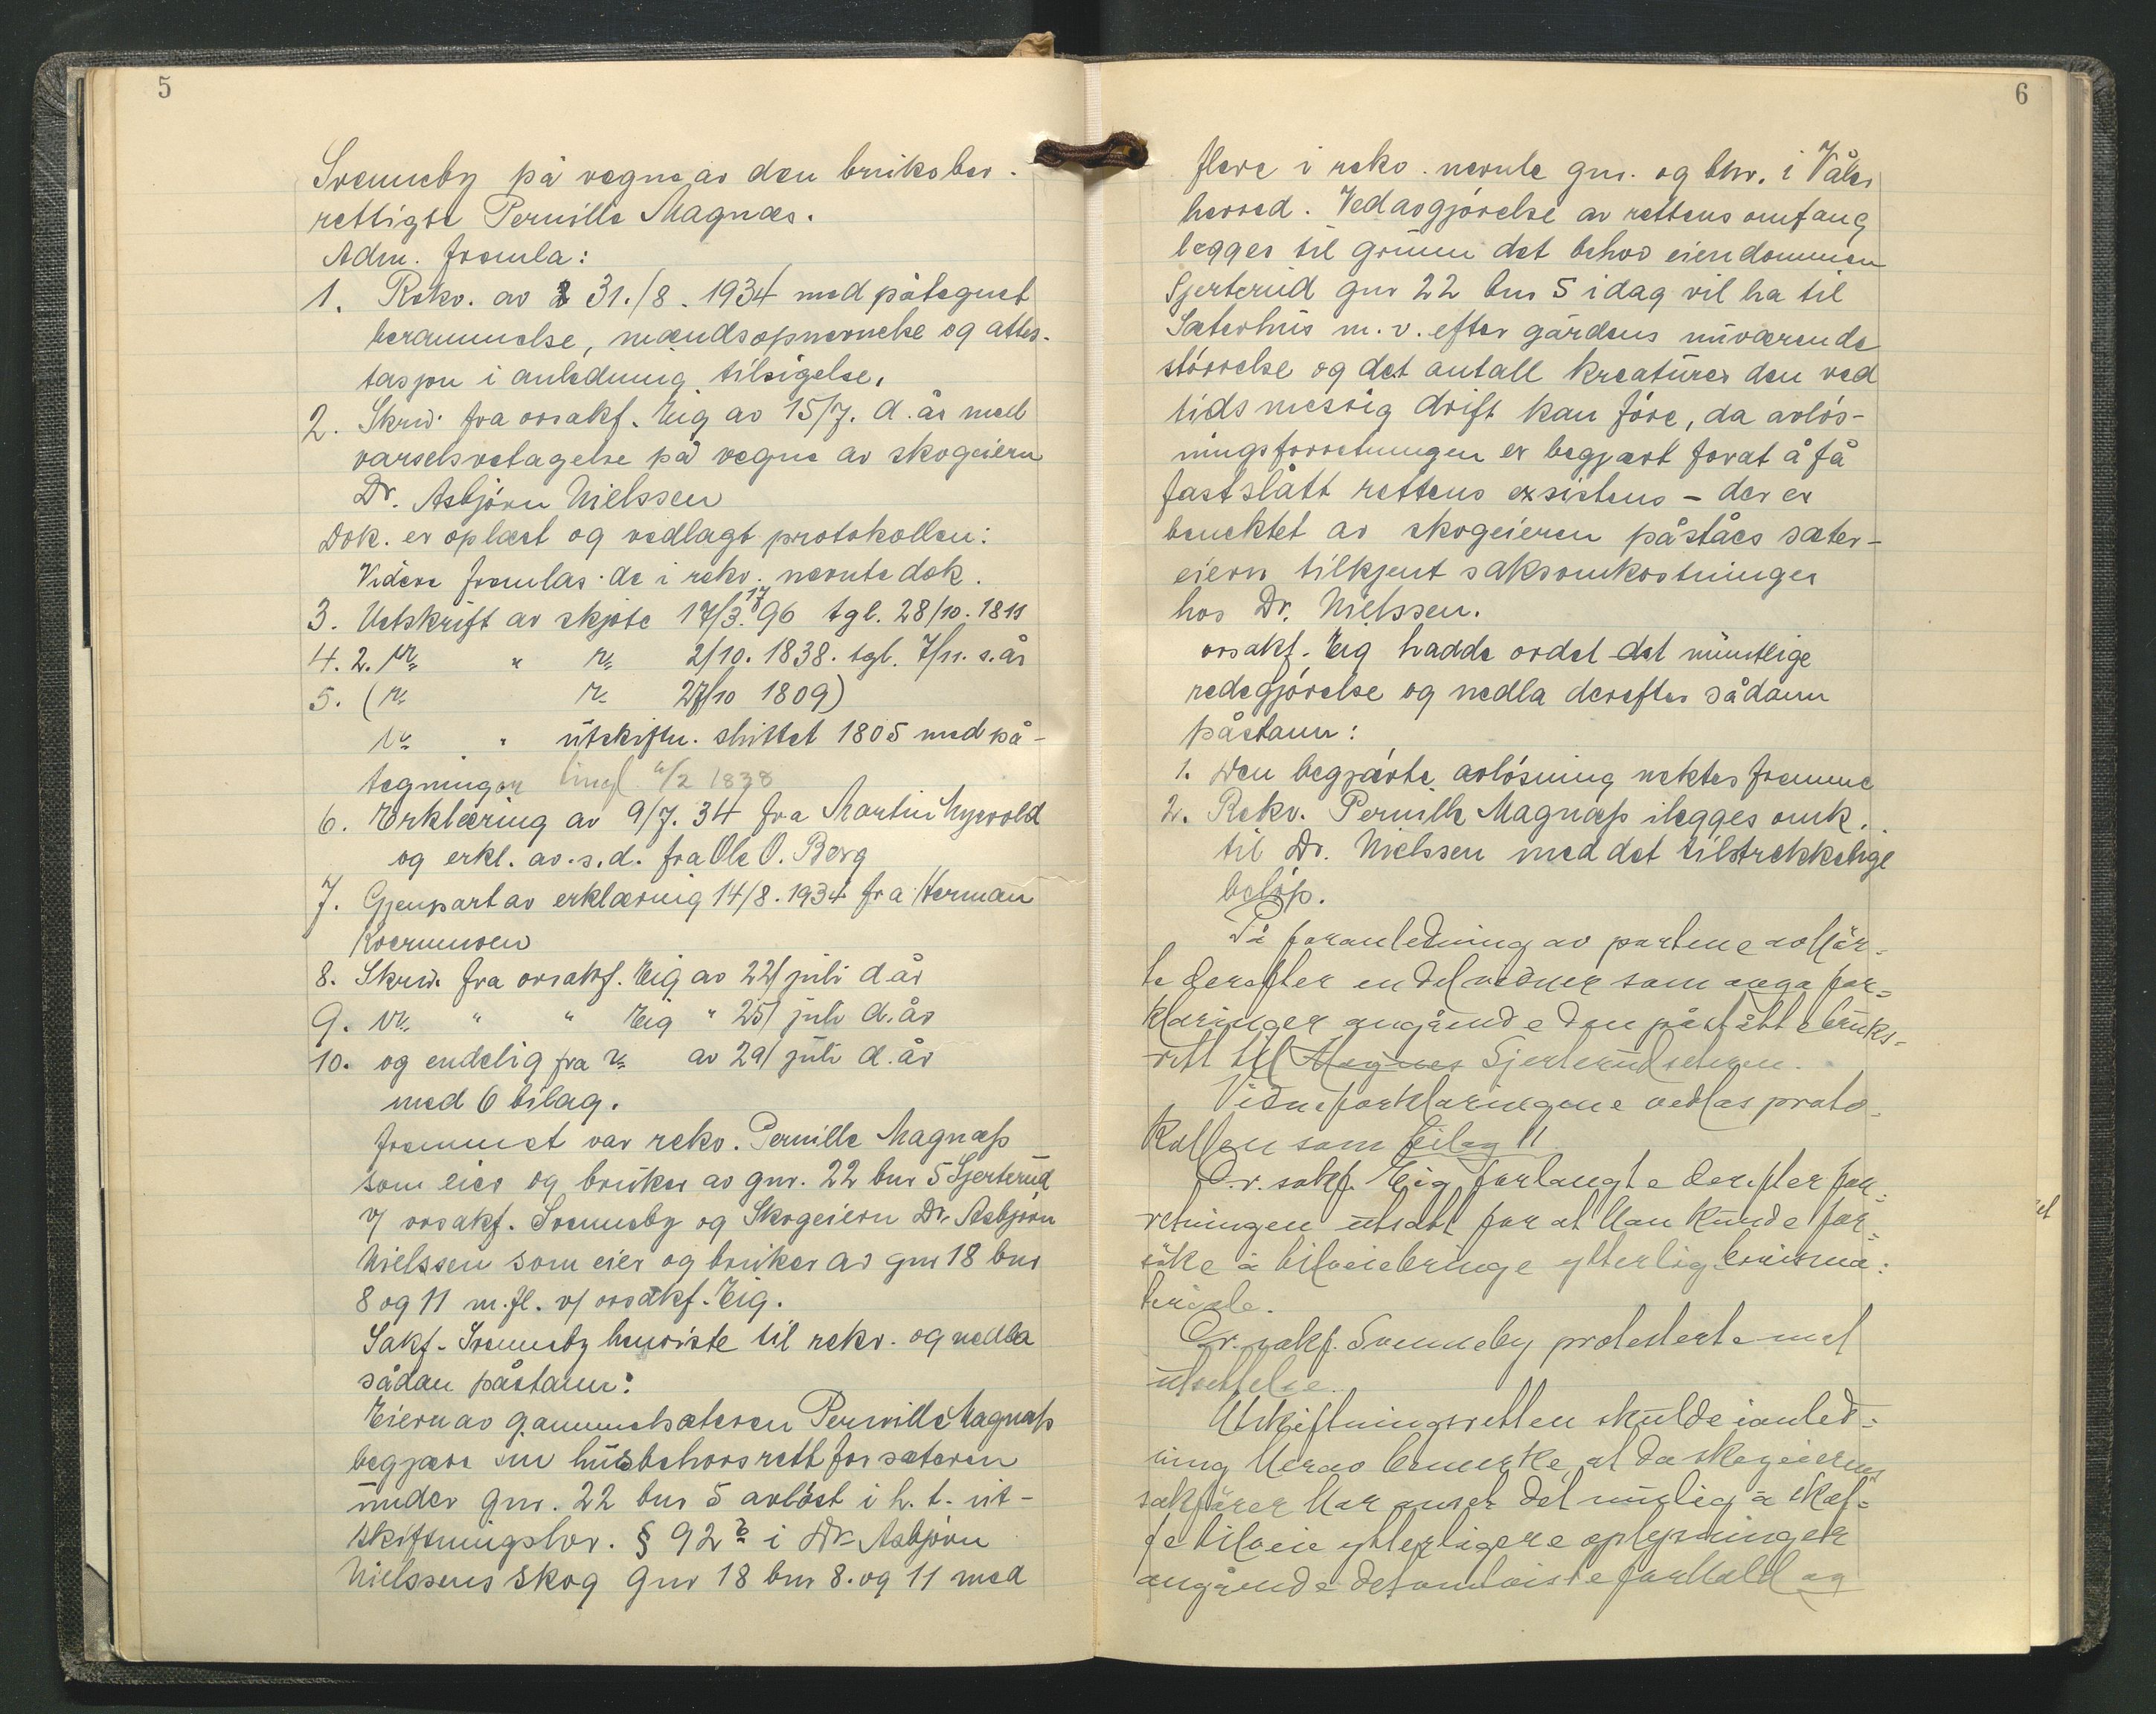 5
Svenneby på vegne av den bruksber-
rettigte Pernille Magnæs.
Adm. fremla:
1. Rekv. av 31./8. 1934 med påtegnet
berammelse, mændsopnevnelse og attes-
tasjon i anledning tilsigelse.
2. Skriv fra orsakf. Eig av 15/7. d. år med
varselsvetagelse på vegne av skogeiern
Dr. Asbjörn Nielssen
Dok. er oplæst og vedlagt protokollen:
Videre fremlas de i rekv. nevnte dok.
3. Uetskrift av skjöte 17/3. 1796 tgl. 28/10. 1811
4. 2. Nr " " 2/10. 1838. tgl. 7/11. s. år
5. ( " " 27/10 1809)
" " utskiftn. sluttet 1805 med på-
tegninger tingl. 6/2 1838
6. Erklæring av 9/7. 34 fra Martin Nyvold
og erkl. av. s. d. fra Ole O. Berg
7. Gjenpart av erklæring 14/8. 1934 fra Herman
Kvernmoen
8. Skriv. fra orsakf. Eig av 22/ juli d år
9. " " " Eig " 25/ juli d. år
10. og endelig fra " av 29/ juli d. år
med 6 bilag.
Fremmet var rekv. Pernille Magnæss
som eier og bruker av gnr. 22 bnr 5 Gjerterud
v/ orsakf. Svenneby og Skogeiern Dr. Asbjörn
Nielssen som eier og bruker av gnr 18 bnr
8 og 11 m. fl. v/ orsakf. Eig.
Sakf. Svenneby henviste til rekv. og nedla
sådan påstann:
Eiern av gammelsæteren Pernille Magnæss
begjære sin husbehovsrett for sæteren
under gnr. 22 bnr 5 avlöst i h. t. ut-
skiftningslov. § 92 b i Dr Asbjörn
Nielssens skog gnr 18 bnr 8. og 11 med
6
flere i rekv. nevnte gnr. og bnr. i Våler
herred. Ved avgjörelse av rettens omfang
legges til grunn det behov eiendommen
Gjerterud gnr 22 bnr 5 idag vil ha til
Sæterhus m. v. efter gårdens nuværende
störrelse og det antall kreaturer den ved
tidsmessig drift kan före, da avlös-
ningsforretningen er begjært forat å få
fastslått rettens exsistens – der er
benektet av skogeieren påståes sæter-
eiern tilkjent saksomkostninger
hos Dr. Nielssen.
orsakf. Eig hadde ordet det muntlige
redegjörelse og nedla derefter sådann
påstann:
1. Den begjærte avlösning nektes fremme
2. Rekv. Pernille Magnæss ilegges omk.
til Dr. Nielssen med det tilstrekkelige
belöp.
På foranledning av partene avhör-
te derefter en del vidner som avga for-
klaringer angående den påståtte bruks-
rett til Magnes Gjerterudseteren.
Vidneforklaringene vedlas proto-
kollen som bilag 11
O.r. sakf. Eig forlangte derefter for-
retningen utsatt for at han kunde for-
söke å tilveiebringe ytterlig bevisma-
teriale.
O.r. sakf. Svenneby protesterte mot
utsettelse.
Utskiftningsretten skulde i anled-
ning herav bemerke, at da skogeierens
sakförer har anset det mulig å skaf-
fe tilveie ytterligere oplysninger
angående det omtviste forhold og